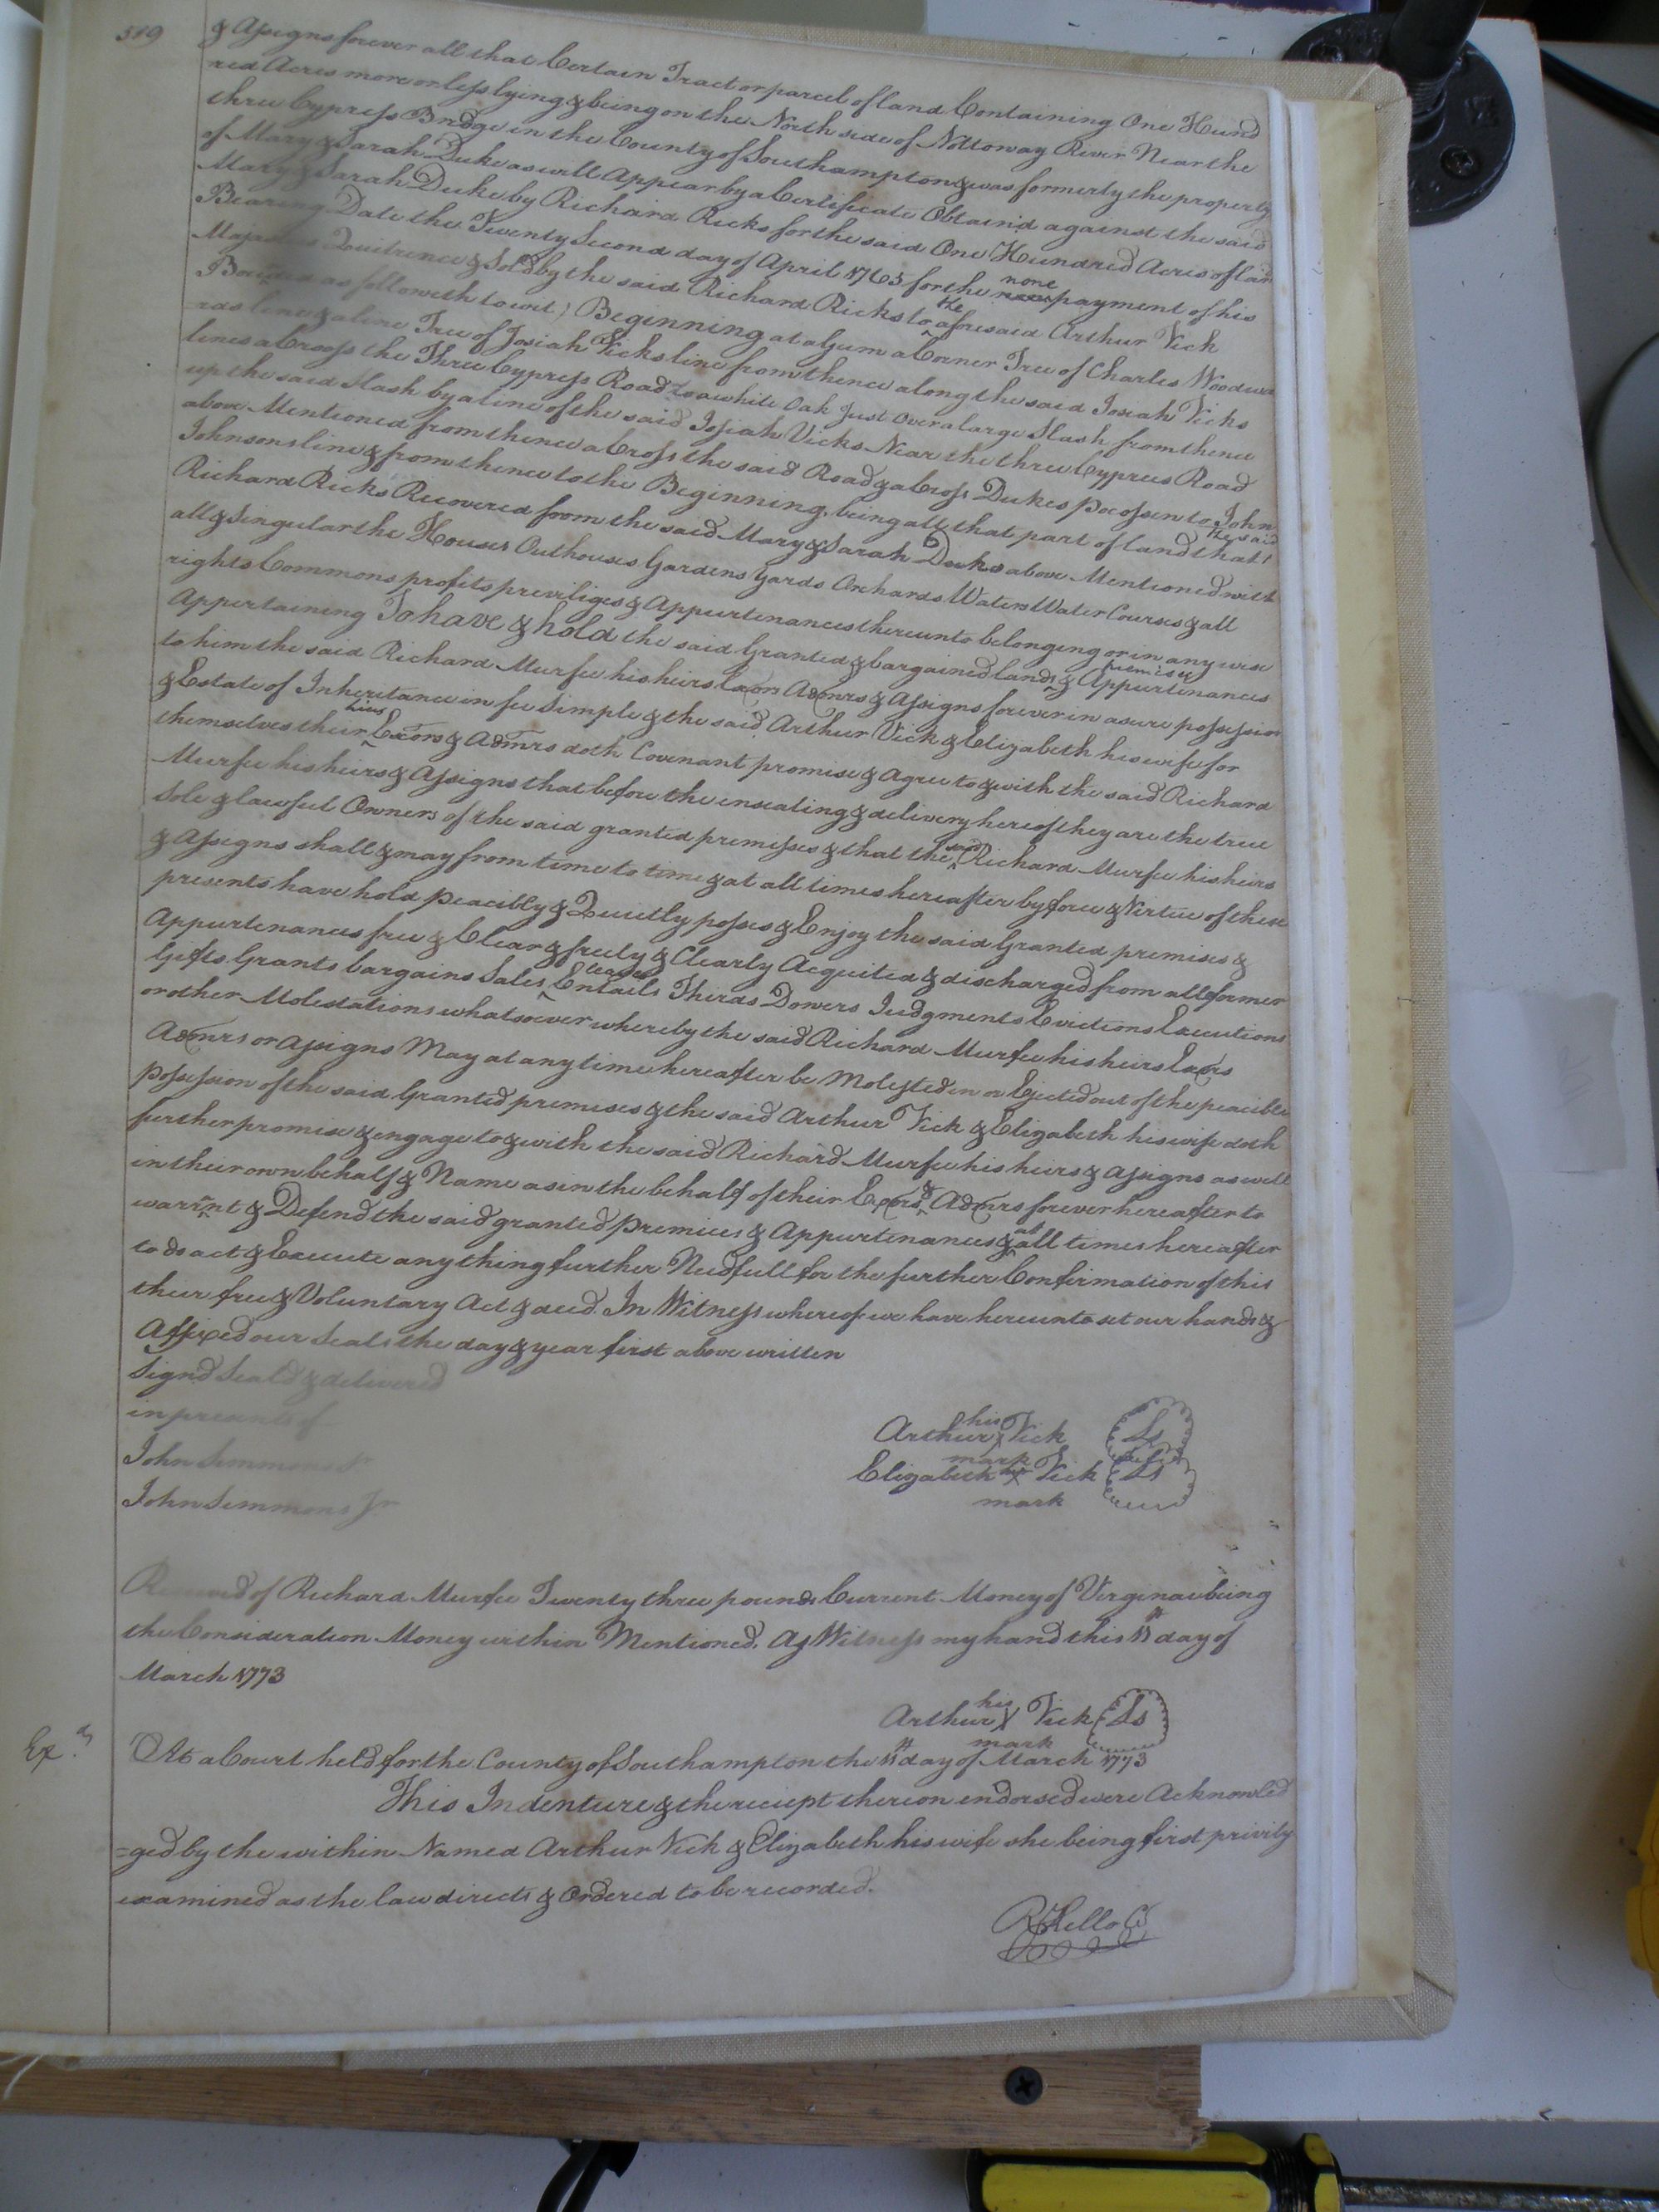 519
& Assigns forever all that Certain Tract or parcel of land Containing One Hund
red Acres more or less lying & being on the North side of Nottoway River Near the
three Cypress Bridge in the County of Southampton & was formerly the property
of Mary & Sarah Duke as will Appear by a Certificate Obtained against the said
Mary & Sarah Duke by Richard Ricks for the said One Hundred Acres of lan
Bearing Date the Twenty Second day of April 1765 for the none payment of his
Majesties Quitrence & Sold by the said Richard Ricks to the aforesaid Arthur Vick
Bounded as followeth to wit) Beginning at a Gum a Corner Tree of Charles Woodwa
rds line & a line Tree of Josiah Vicks line from thence along the said Josiah Vicks
lines a Cross the Three Cypress Road to a white Oak Just Over a large Slash from thence
up the said Slash by a line of the said Josiah Vicks Near the three Cypress Road
above Mentioned from thence a Cross the said Road & a Cross Dukes Pocosson to John
Johnsons line & from thence to the Beginning, being all that part of land that the said
Richard Ricks Recovered from the said Mary & Sarah Duke above Mentioned with
all & Singular the Houses Outhouses Gardens Yards Orchards Waters Water Courses & all
rights Commons profits priviliges & Appurtenances thereunto belonging or in any wise
Appertaining To have & hold the said Granted & bargained lands premises & Appurtenances
to him the said Richard Murfee his heirs Exors Admrs & Assigns forever in a sure possession
& Estate of Inheritance in fee Simple & the said Arthur Vick & Elizabeth his wife for
themselves their Exors & Admrs doth Covenant promise & Agree to & with the said Richard
Murfee his heirs & Assigns that before the ensealing & delivery hereof they are the true
Sole & lawful Owners of the said granted premises & that the said Richard Murfee his heirs
& Assigns shall & may from time to time & at all times hereafter by force & Virtue of these
presents have hold peacibly & Quietly posses & Enjoy the said Granted premises &
Appurtenances free & Clear & freely & Clearly Acquited & discharged from all former
Gifts Grants bargains Sales Leases Entails Thirds Dowers Judgments Evictions Executions
or other Molestations whatsoever whereby the said Richard Murfee his heirs Exors
Admrs or assigns May at any time hereafter be Molested in or Ejected out of the peacible
possession of the said Granted premises & the said Arthur Vick & Elizabeth his wife doth
further promise & engage to & with the said Richard Murfee his heirs & assigns as well
in their own behalf & Name as in the behalf of their Exors & Admrs forever hereafter to
warrnt & Defend the said granted premices & Appurtenances & at all times hereafter
to do act & Execute any thing further Needfull for the further Confirmation of this
their free & Voluntary Act & deed. In Witness whereof we have hereunto set our hands &
Affixed our Seals the day & year first above written
Signd Seald & delivered
in presents of
John Simmons Sr
John Simmons Jr
Arthur his X mark Vick Ls
Elizabeth her X mark Vick Ls
Received of Richard Murfee Twenty three pounds Current Money of Virginia being
the Consideration Money within Mentioned. As Witness my hand this 11th day of
March 1773
Arthur his X mark Vick Ls
Exd
At a Court held for the County of Southampton the 11th day of March 1773
This Indenture & the reciept thereon endorsed were Acknowled
=ged by the within Named Arthur Vick & Elizabeth his wife she being first privily
examined as the law directs & Ordered to be recorded.
R Kello CC